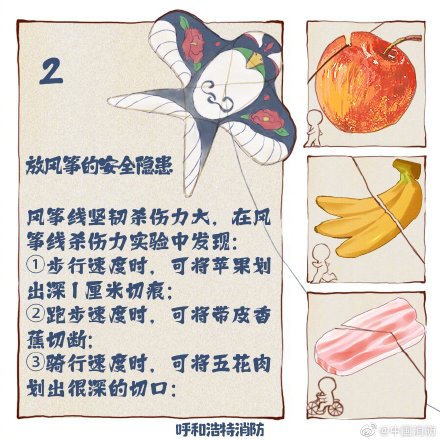 2
放风筝的安全隐患
风筝线坚韧杀伤力大，在风
筝线杀伤力实验中发现：
①步行速度时，可将苹果划
出深1厘米切痕；
②跑步速度时，可将带皮香
蕉切断；
③骑行速度时，可将五花肉
划出很深的切口；
呼和浩特消防
@中国消防